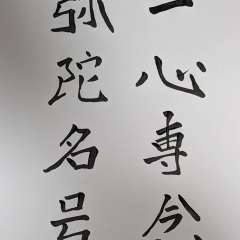 一心専念
弥陀名号